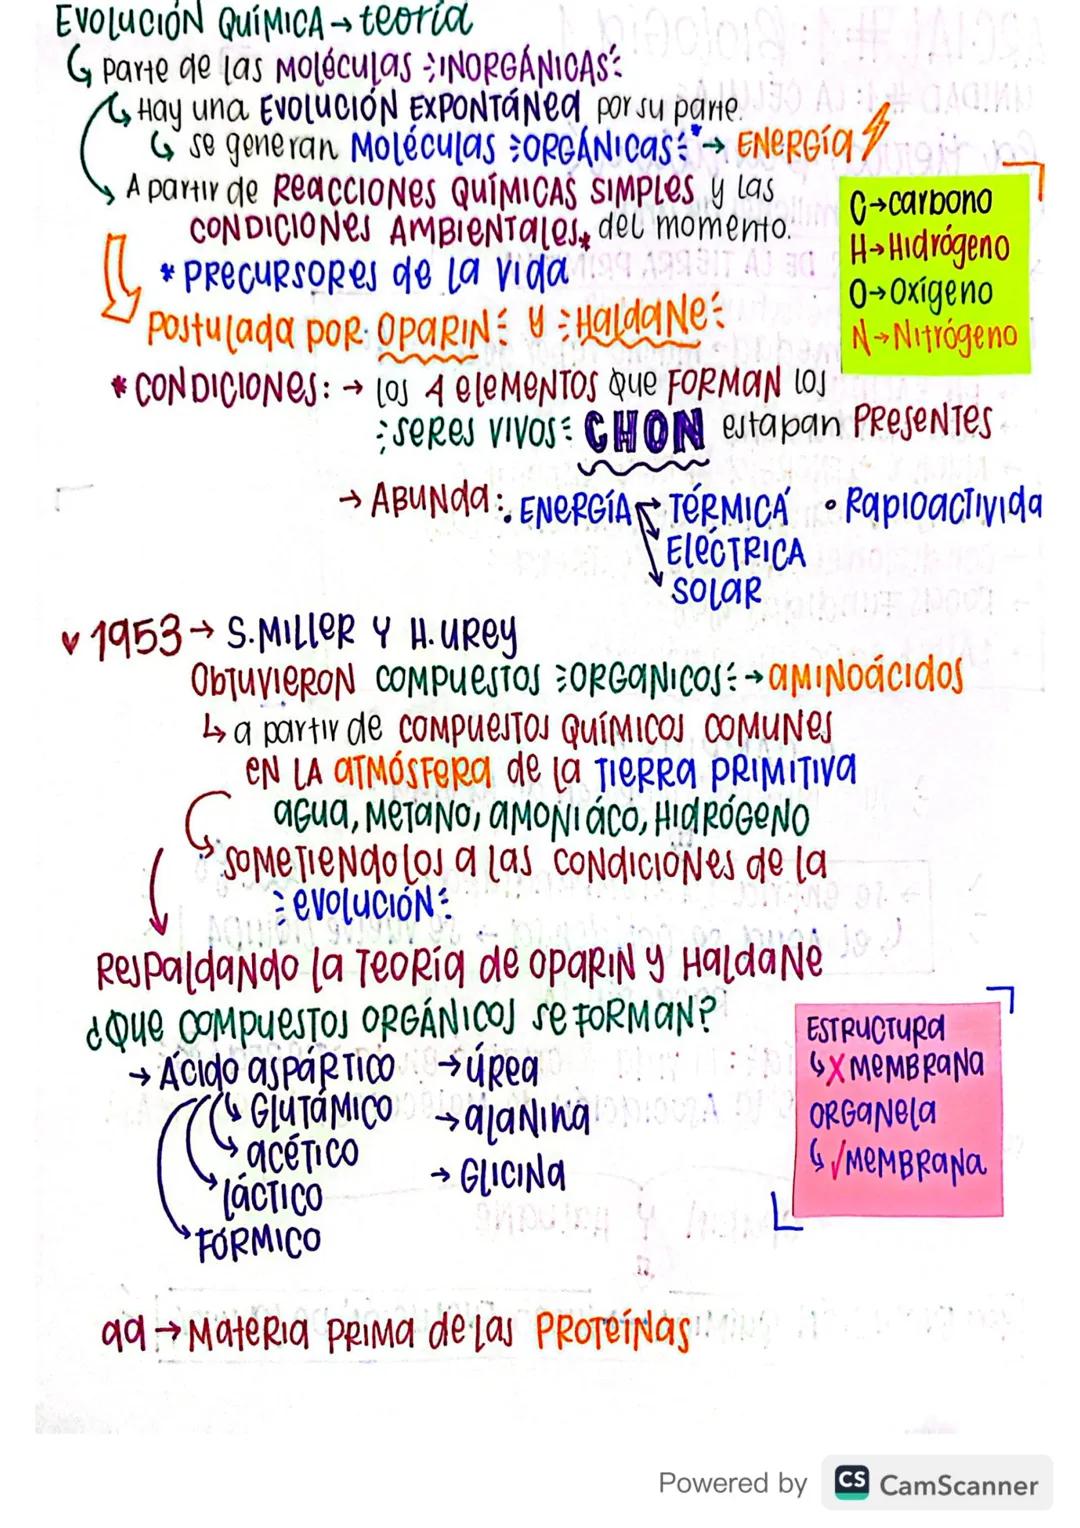 EVOLUCIÓN QUÍMICA → teoría
↳ parte de las MOLÉCULAS INORGÁNICAS
↳ Hay una EVOLUCIÓN EXPONTÁNEA por su parte.
↳ se generan MOLÉCULAS ORGÁNICAS * → ENERGÍA
A partir de REACCIONES QUÍMICAS SIMPLES y las
CONDICIONES AMBIENTALES * del momento.
* PRECURSORES de la vida
Postulada por: OPARIN y HALDANE
C → carbono
H → Hidrógeno
O → Oxígeno
N → Nitrógeno
* CONDICIONES: → los 4 elementos que FORMAN los
SERES VIVOS CHON estaban PRESENTES
→ Abunda: . ENERGÍA → TÉRMICA • Radioactivida
ELÉCTRICA
SOLAR
♥ 1953 → S. MILLER Y H. UREY
Obtuvieron compuestos ORGANICOS → aminoácidos
↳ a partir de COMPUESTOS QUÍMICOS COMUNES
EN LA ATMÓSFERA de la TIERRA PRIMITIVA
agua, METANO, amoniáco, HIDRÓGENO
SOMETIENDOLOS a las condiciones de la
evolución
Respaldando la teoría de OPARIN y HALDANE
¿Que compuestos ORGÁNICOS se FORMAN?
→ Ácido aspártico → úrea
↳ Glutámico → alanina
acético → Glicina
láctico
FÓRMICO
ESTRUCTURA
↳ X MEMBRANA
ORGANELA
↳ √ MEMBRANA
aa → Materia prima de las PROTEÍNAS
Powered by CS CamScanner